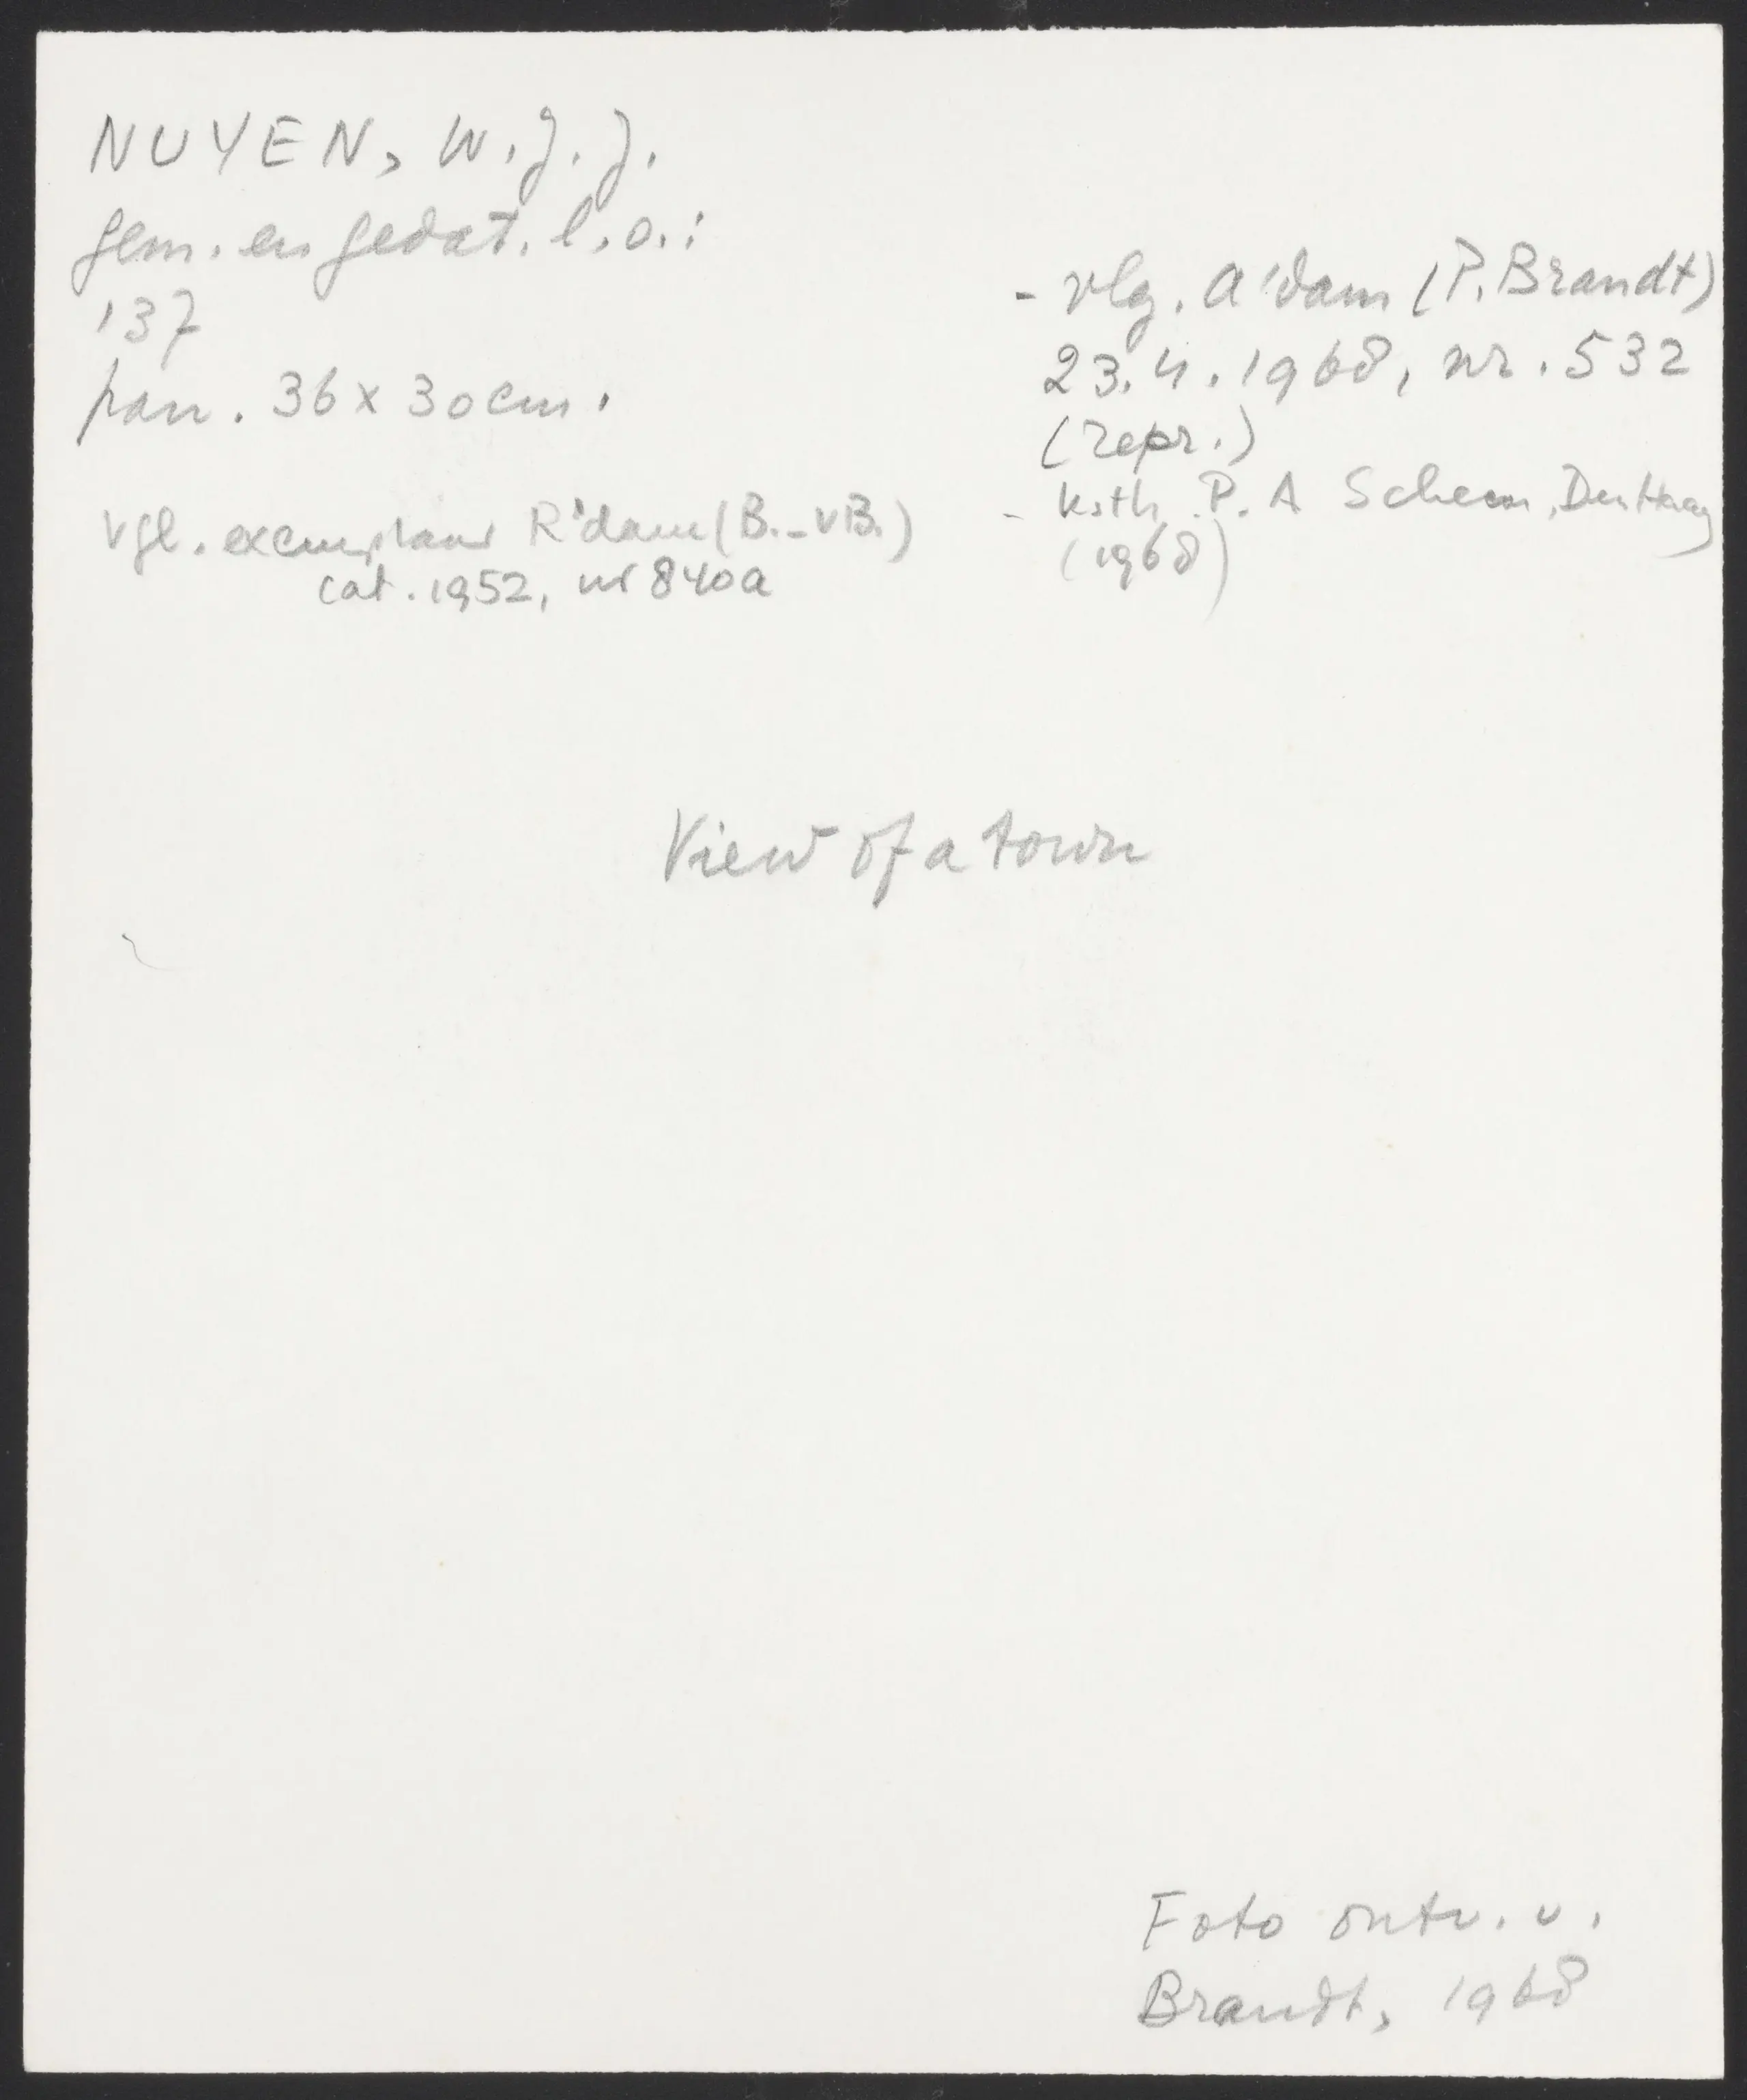 NUYEN, W.J.J.
gem. en gedat. l.o.:
'37
pan. 36 x 30 cm.
vgl. exemplaar R'dam (B.-vB.)
cat. 1952, nr 840a
- vlg. A'dam (P. Brandt)
23.4.1968, nr. 532
(repr.)
- ksth. P. A Scheen, Den Haag
(1968)
View of a town
Foto ontv. v.
Brandt, 1968